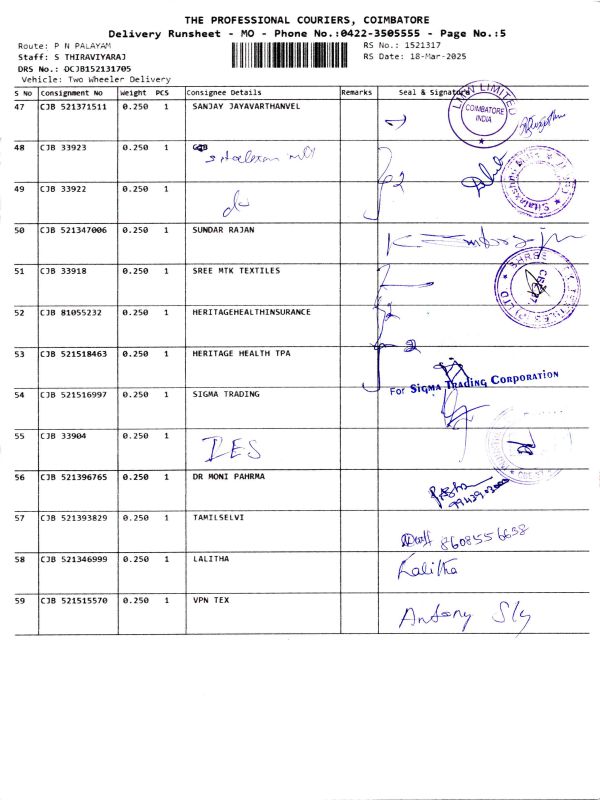 THE PROFESSIONAL COURIERS, COIMBATORE
Delivery Runsheet - MO - Phone No.:0422-3505555 - Page No.:5
Route: P N PALAYAM
RS No.: 1521317
Staff: S THIRAVIYARAJ
RS Date: 18-Mar-2025
DRS No.: DCJB152131705
Vehicle: Two Wheeler Delivery
S No Consignment No Weight PCS Consignee Details Remarks Seal & Signature
47 CJB 521371511 0.250 1 SANJAY JAYAVARTHANVEL
COIMBATORE
INDIA
48 CJB 33923 0.250 1
49 CJB 33922 0.250 1
50 CJB 521347006 0.250 1 SUNDAR RAJAN
51 CJB 33918 0.250 1 SREE MTK TEXTILES
52 CJB 81055232 0.250 1 HERITAGEHEALTHINSURANCE
53 CJB 521518463 0.250 1 HERITAGE HEALTH TPA
For SIGMA TRADING CORPORATION
54 CJB 521516997 0.250 1 SIGMA TRADING
55 CJB 33904 0.250 1
56 CJB 521396765 0.250 1 DR MONI PAHRMA
57 CJB 521393829 0.250 1 TAMILSELVI
8608556638
58 CJB 521346999 0.250 1 LALITHA
Lalitha
59 CJB 521515570 0.250 1 VPN TEX
Antony Sly